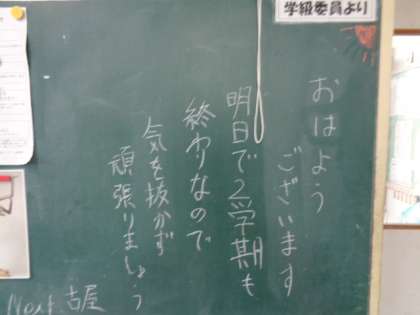 学級委員より
おはよう
ございます
明日で2学期も
終わりなので
気を抜かず
頑張りましょう
Next 古屋